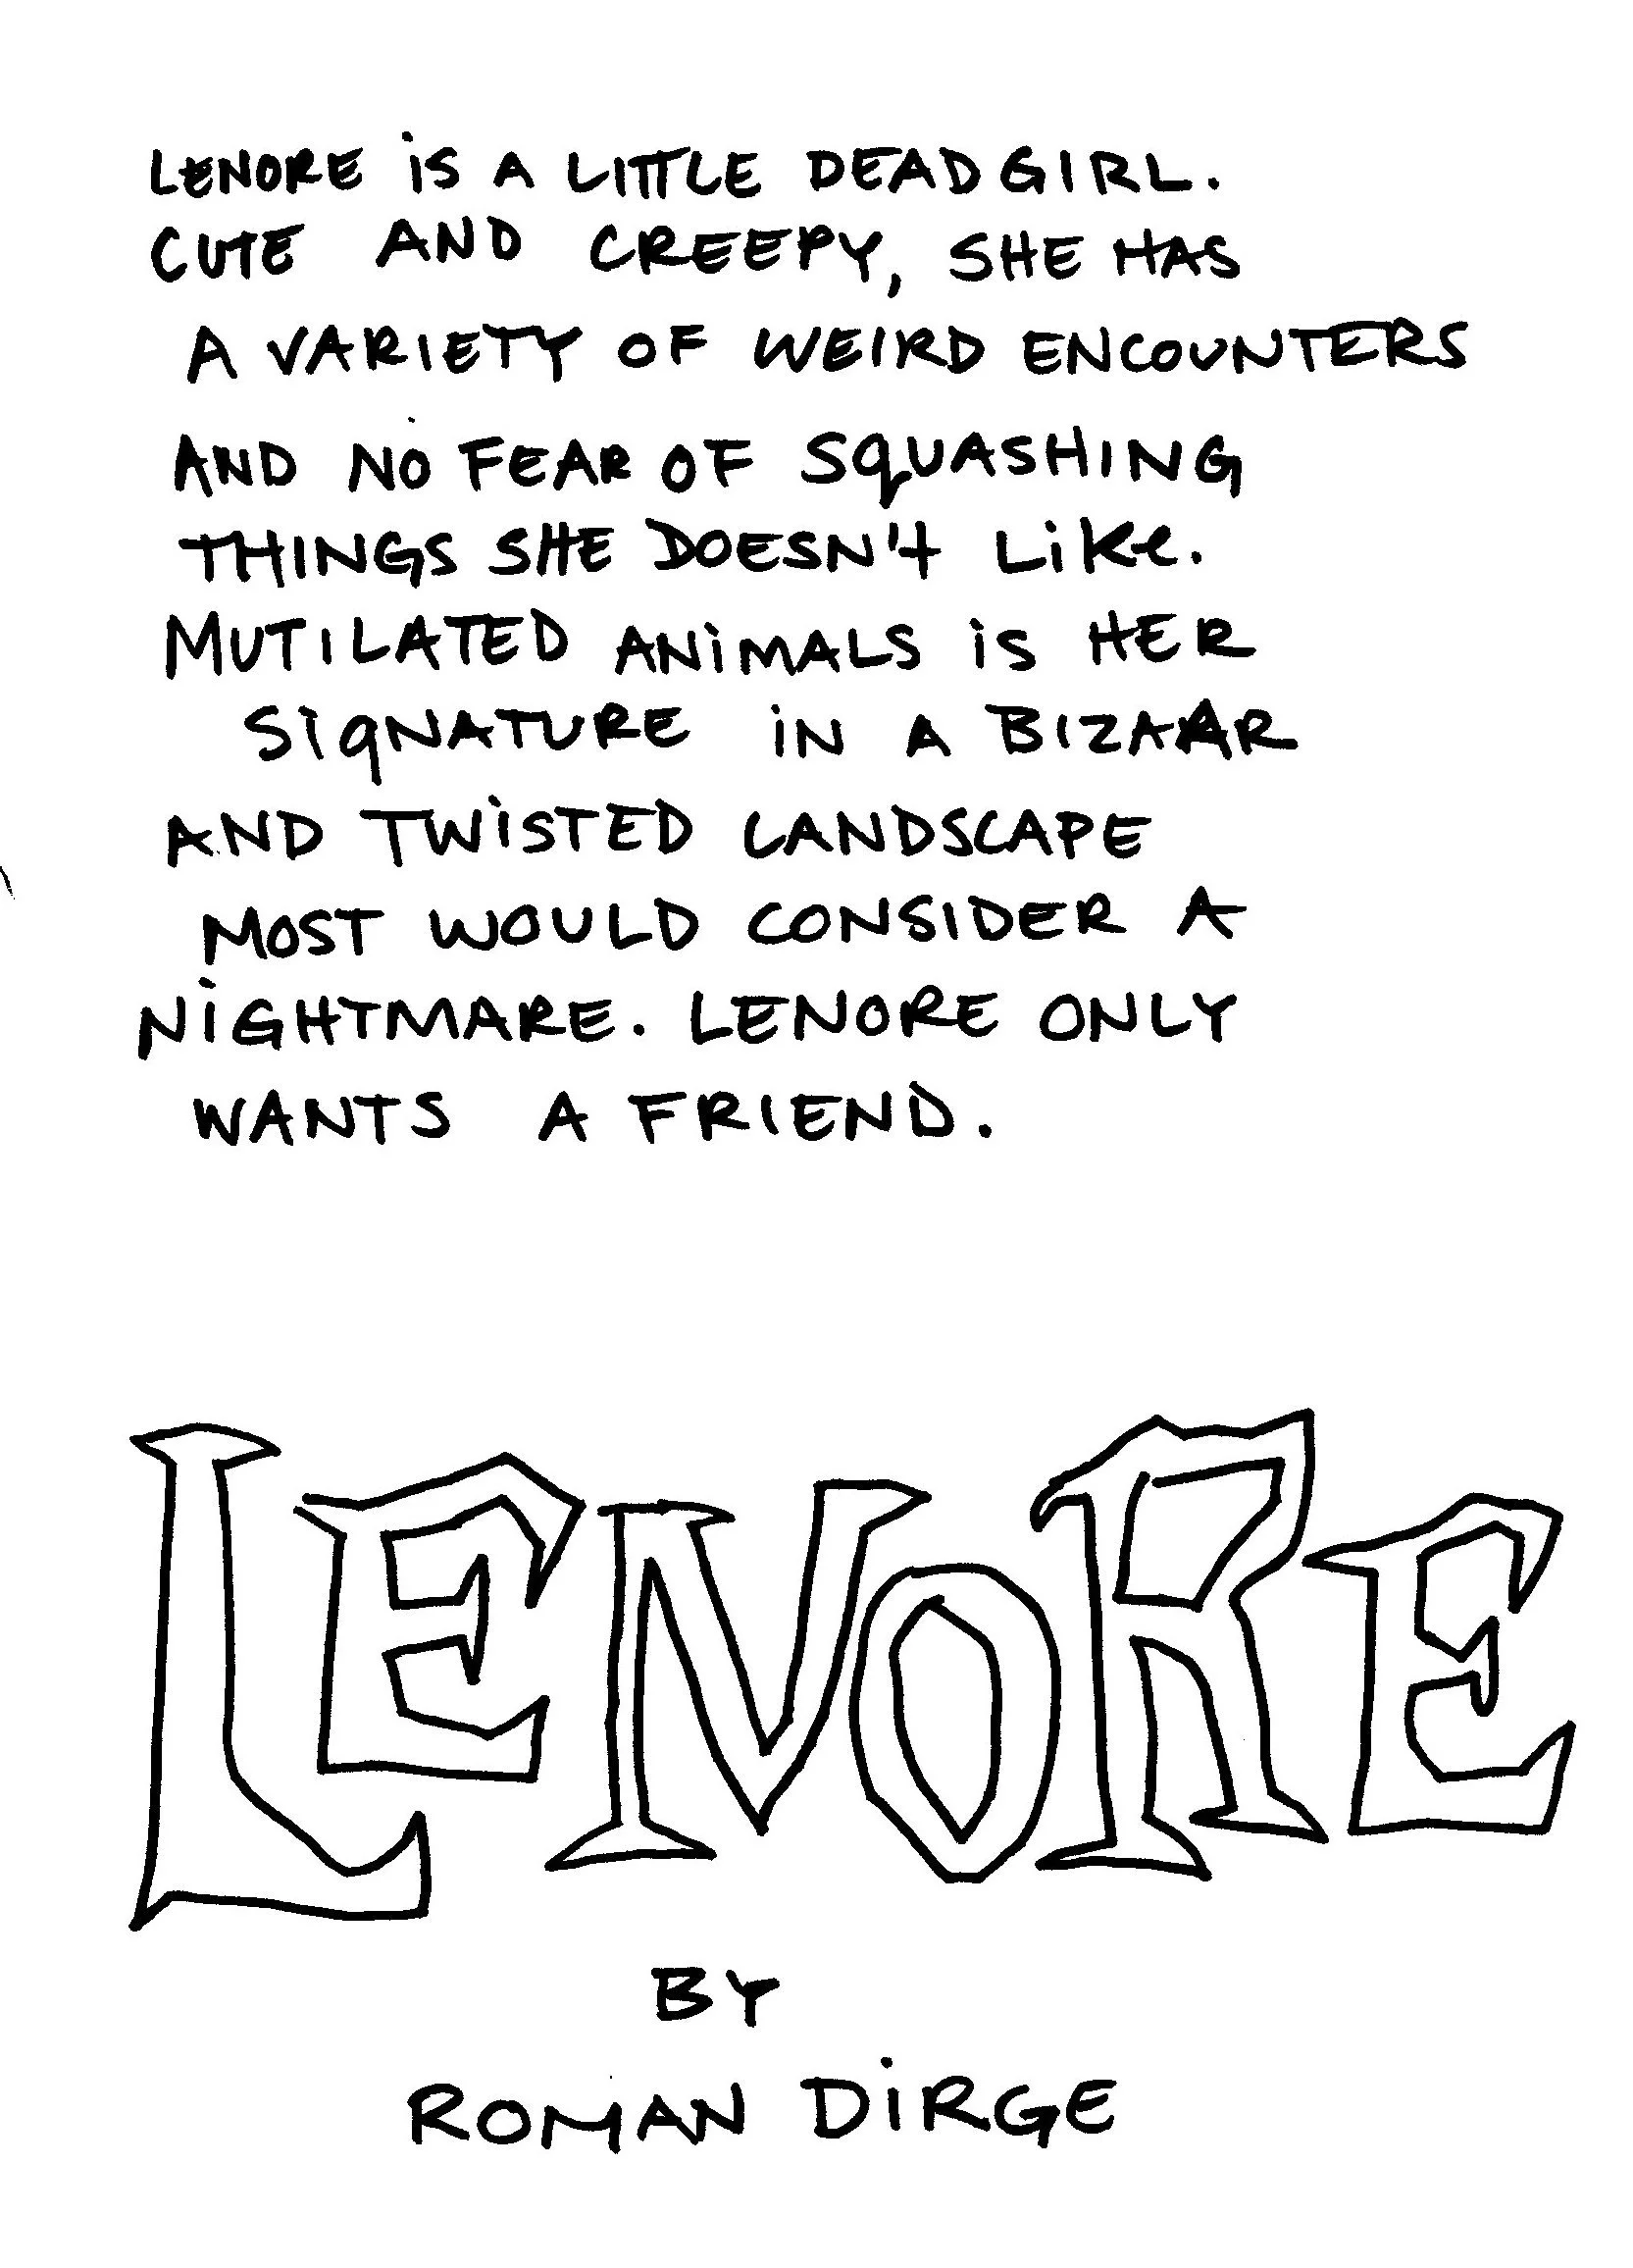 LENORE iS A LITTLE DEAD GIRL.
CUTE AND CREEPY, SHE HAS
A VARIETY OF WEIRD ENCOUNTERS
AND NO FEAR OF SqUASHING
THINGS SHE DOESN't LiKe.
MUTILATED ANiMALS iS HER
SiqNATURE iN A BIZAAR
AND TWiSTED LANDSCAPE
MOST WOULD CONSIDER A
NiGHTMARE. LENORE ONLY
WANTS A FRIEND.
LENORE
BY
ROMAN DiRGE